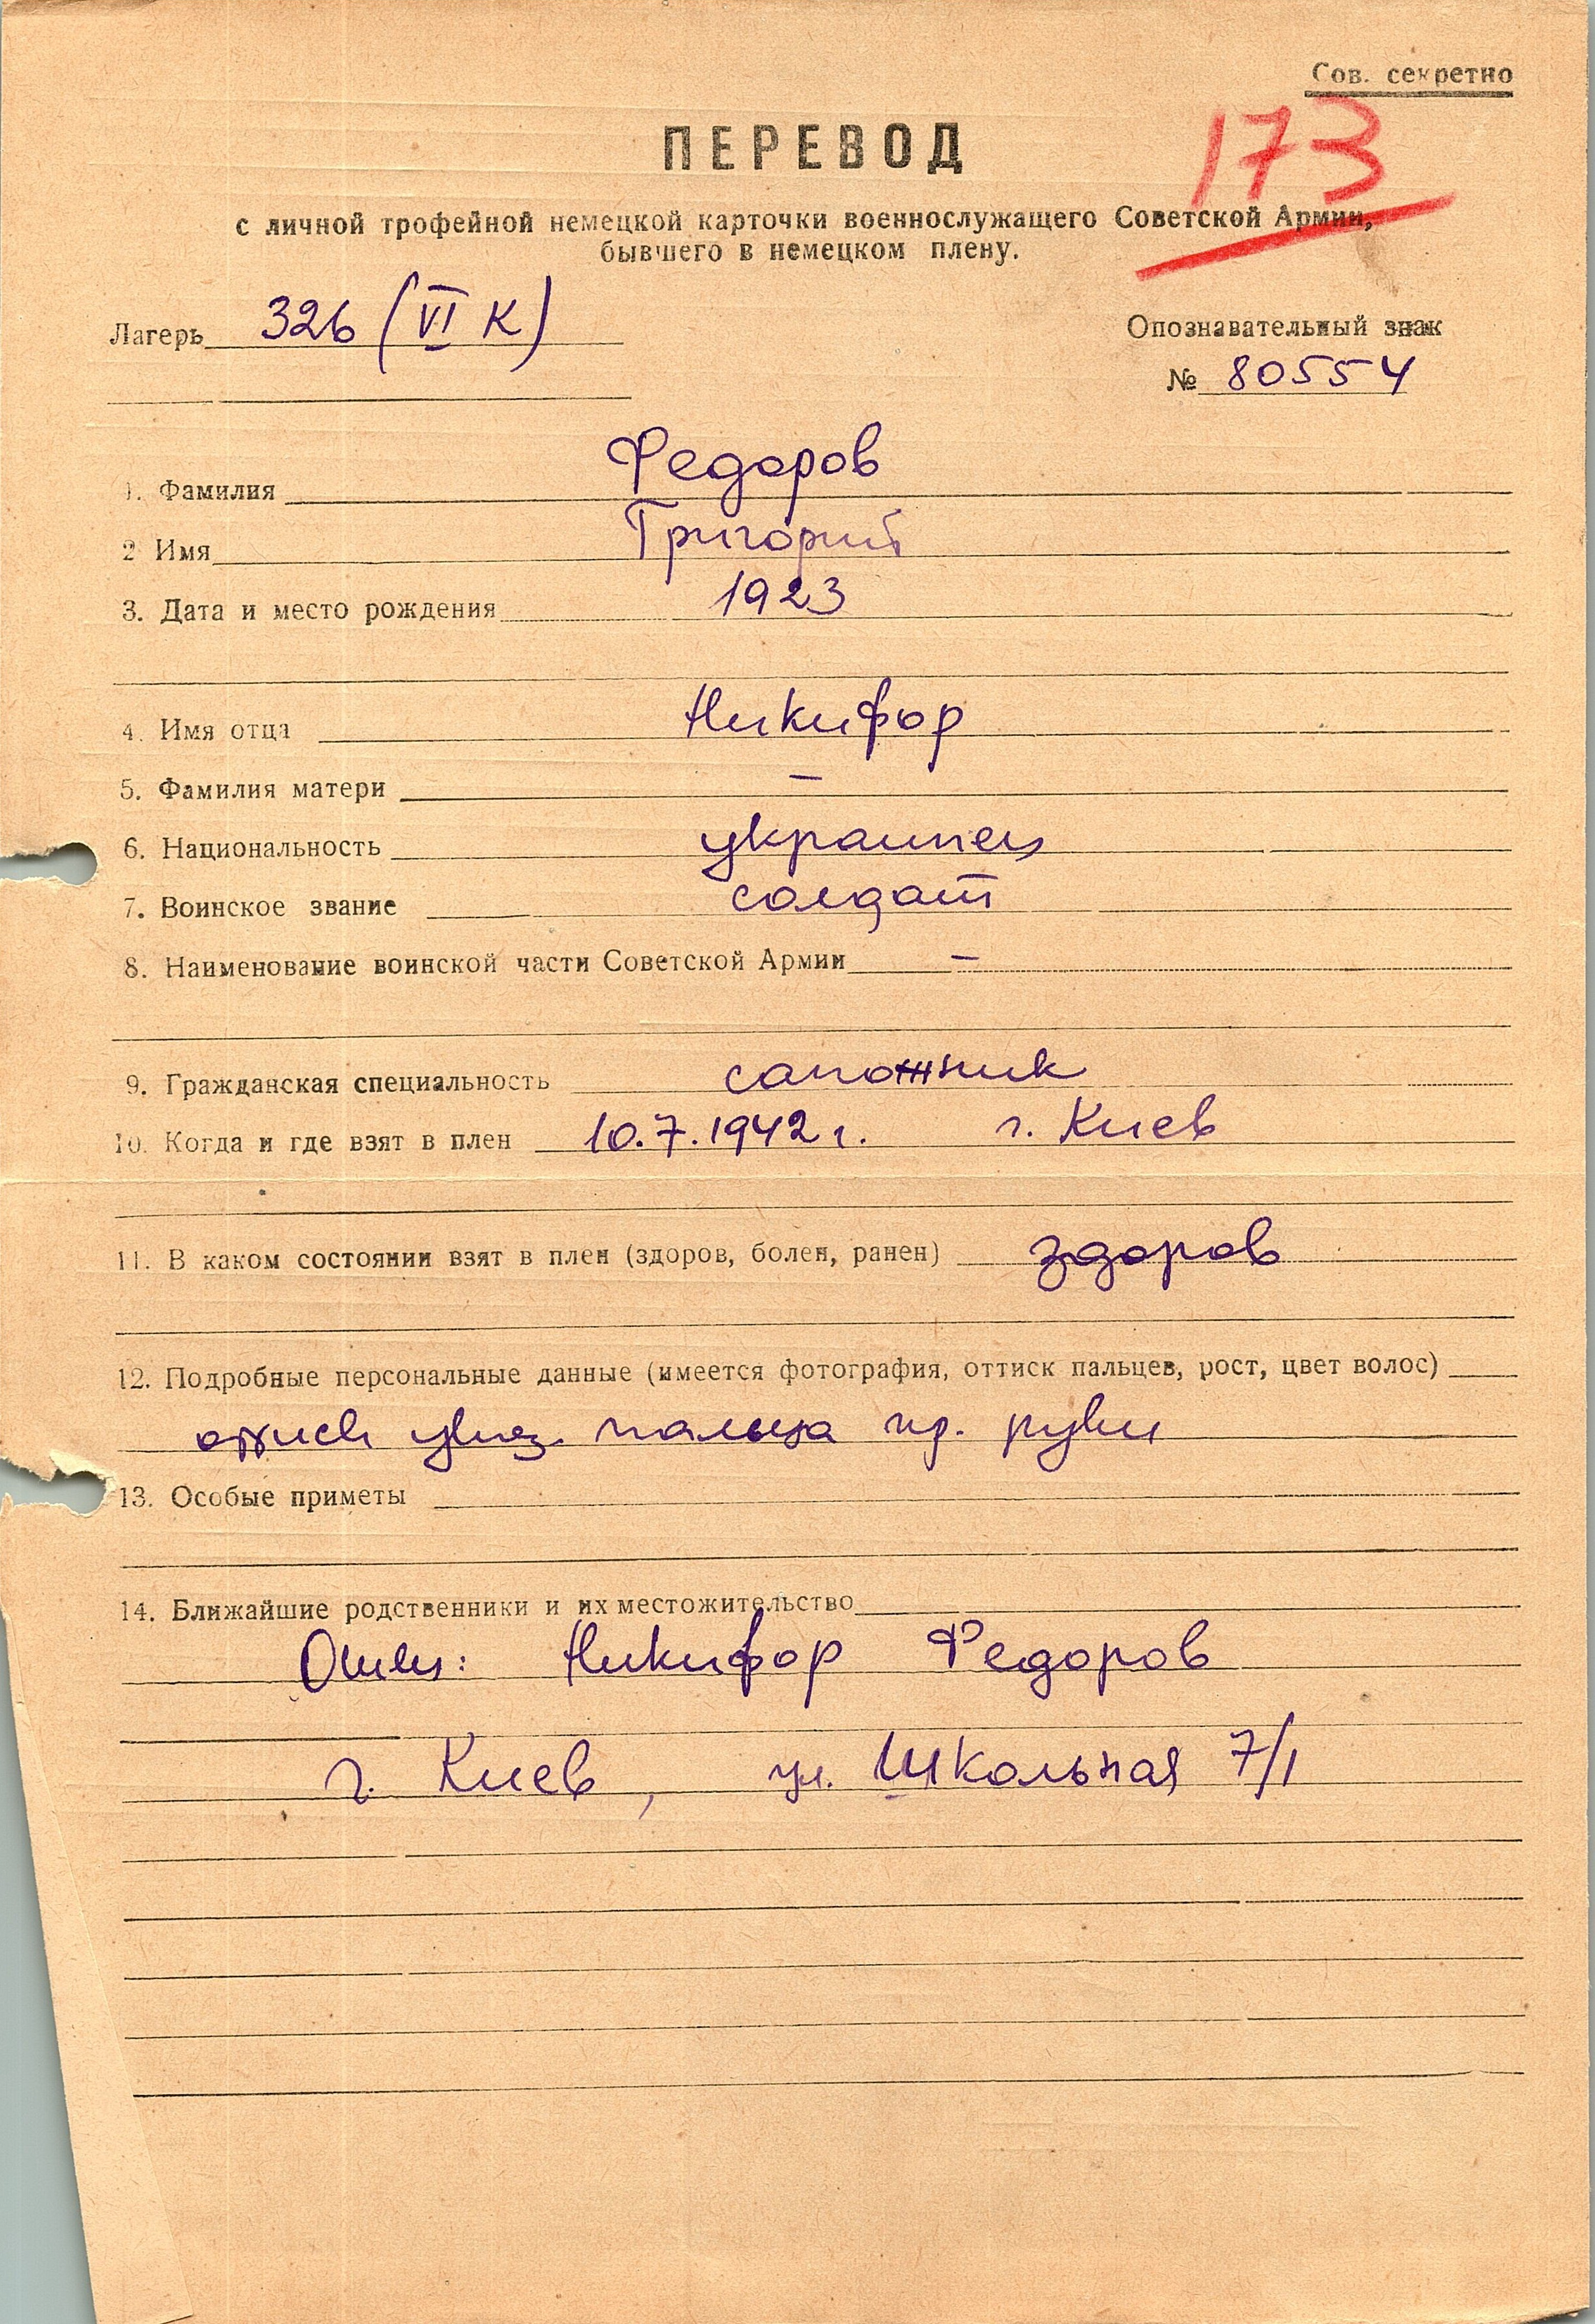 Сов. секретно
173
ПЕРЕВОД
с личной трофейной немецкой карточки военнослужащего Советской Армии,
бывшего в немецком плену.
Лагерь 326 (VI К)
Опознавательный знак
№ 80554
1. Фамилия Федоров
2 Имя Григорий
3. Дата и место рождения 1923
4. Имя отца Никифор
5. Фамилия матери —
6. Национальность украинец
7. Воинское звание солдат
8. Наименование воинской части Советской Армии —
9. Гражданская специальность сапожник
10. Когда и где взят в плен 10.7.1942 г. г. Киев
11. В каком состоянии взят в плен (здоров, болен, ранен) здоров
12. Подробные персональные данные (имеется фотография, оттиск пальцев, рост, цвет волос)
оттиск указ. пальца пр. руки
13. Особые приметы
14. Ближайшие родственники и их местожительство
Отец: Никифор Федоров
г. Киев, ул. Школьная 7/1